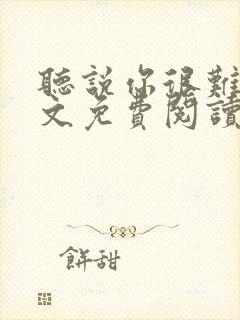 聽說你很難
文免費閱讀
餅甜